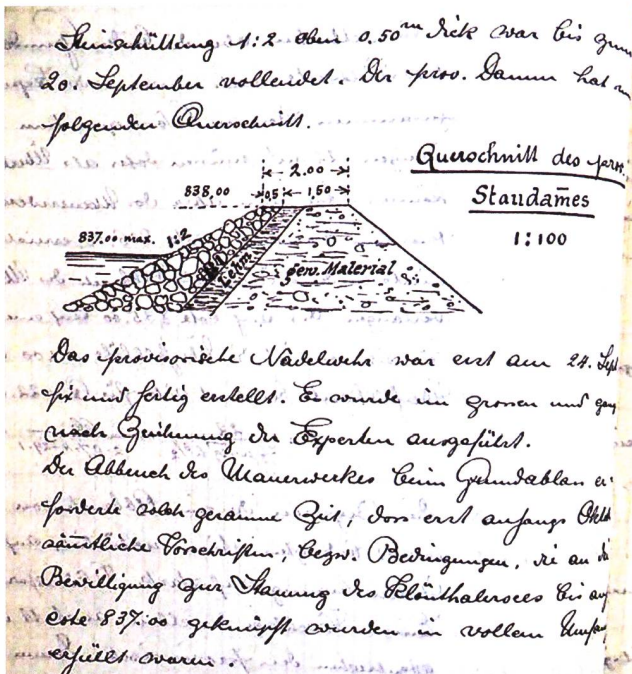 Steinschüttung 1:2 oben 0.50 m dick war bis zum
20. September vollendet. Der prov. Damm hat
folgenden Querschnitt.
Querschnitt des prov.
Staudam̅es
1:100
2.00
838,00 0,5 1,50
837.00 max. 1:2
Lehm
gew. Material
Das provisorische Nadelwehr war erst am 24. Sept
fix und fertig erstellt. Es wurde im grossen und ganz
nach Zeichnung der Experten ausgeführt.
Der Abbruch des Mauerwerkes beim Grundablass er-
forderte solch geraume Zeit, dass erst anfangs Okto
sämtliche Vorschriften, bezw. Bedingungen, die an die
Bewilligung zur Stauung des Klönthalersees bis auf
cote 837.00 geknüpft wurden in vollem Umfang
erfüllt waren.